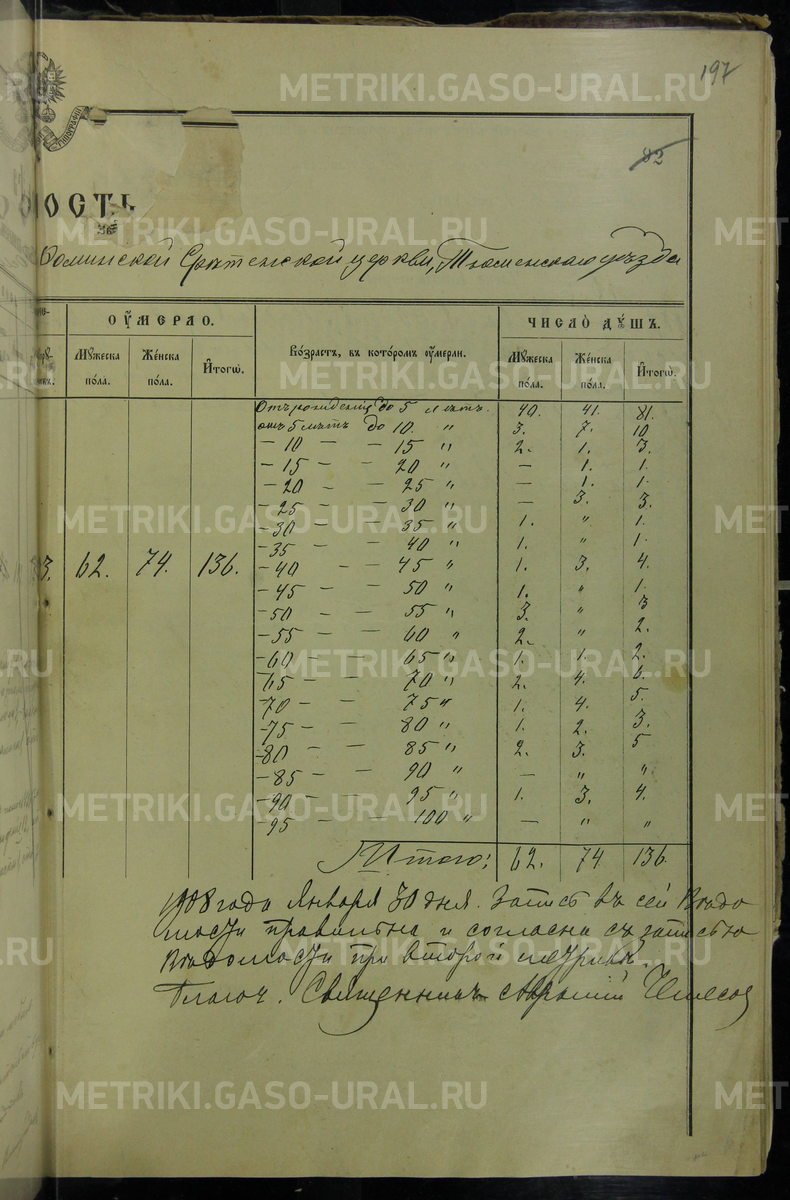 METRIKI.GASO-URAL.RU
197
82
ТИПОГРАФІИ
ОСТЬ
Ѳоминской Срѣтенской церкви, Тюменскаго уѣзда
ОУ҆МЕРЛО.
ЧИСЛО ДꙊШЪ.
Мꙋжеска пола. Женска пола. Итогѡ. Возрастъ, въ которомъ оумерли. Мꙋжеска пола. Женска пола. Итогѡ.
Отъ рожденія до 5 лѣтъ. 40. 41. 81.
отъ 5 лѣтъ до 10. " 3. 7. 10
— 10 — — 15 " 2. 1. 3.
— 15 — — 20 " — 1. 1.
— 20 — — 25 " — 1. 1.
— 25 — — 30 " — 3. 3.
— 30 — — 35 " 1. " 1.
— 35 — — 40 " 1. " 1.
3. 62. 74. 136. — 40 — — 45 " 1. 3. 4.
— 45 — — 50 " 1. " 1.
— 50 — — 55 " 3. " 3
— 55 — — 60 " 2. " 2.
— 60 — — 65 " 1. 1. 2.
— 65 — — 70 " 2. 4. 6.
— 70 — — 75 " 1. 4. 5.
— 75 — — 80 " 1. 2. 3.
— 80 — — 85 " 2. 3. 5
— 85 — — 90 " — " "
— 90 — — 95 " 1. 3. 4.
— 95 — — 100 " — " "
Итого: 62. 74 136.
1908 года Января 30 дня. Запись въ сей Вѣдо
мости правильна и согласна съ записью
Вѣдомости при второй метрикѣ.
Благоч. Священникъ